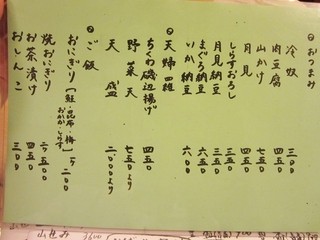 おつまみ
冷奴 三〇〇
肉豆腐 四五〇
山かけ 七五〇
月見 四五〇
しらすおろし 三五〇
月見納豆 三五〇
まぐろ納豆 六五〇
いか納豆 六〇〇
天婦羅
ちくわ磯辺揚げ 四五〇
野菜天 七五〇より
天盛 二、〇〇〇より
ご飯
おにぎり [鮭・昆布・梅 おかか・しらす] 一ケ 二〇〇
焼おにぎり 二ケ 五〇〇
お茶漬け 四五〇
おしんこ 三〇〇